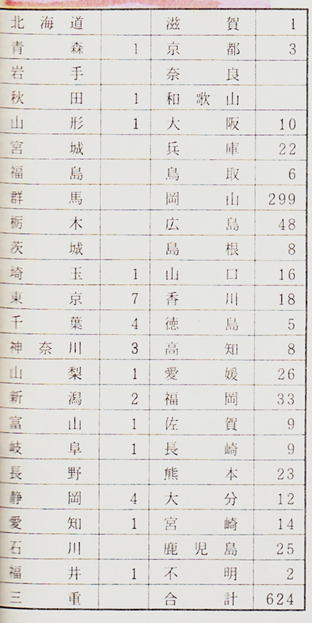 北海道 滋賀 1
青森 1 京都 3
岩手 奈良
秋田 1 和歌山
山形 1 大阪 10
宮城 兵庫 22
福島 鳥取 6
群馬 岡山 299
栃木 広島 48
茨城 島根 8
埼玉 1 山口 16
東京 7 香川 18
千葉 4 徳島 5
神奈川 3 高知 8
山梨 1 愛媛 26
新潟 2 福岡 33
富山 1 佐賀 9
岐阜 1 長崎 9
長野 熊本 23
静岡 4 大分 12
愛知 1 宮崎 14
石川 鹿児島 25
福井 1 不明 2
三重 合計 624